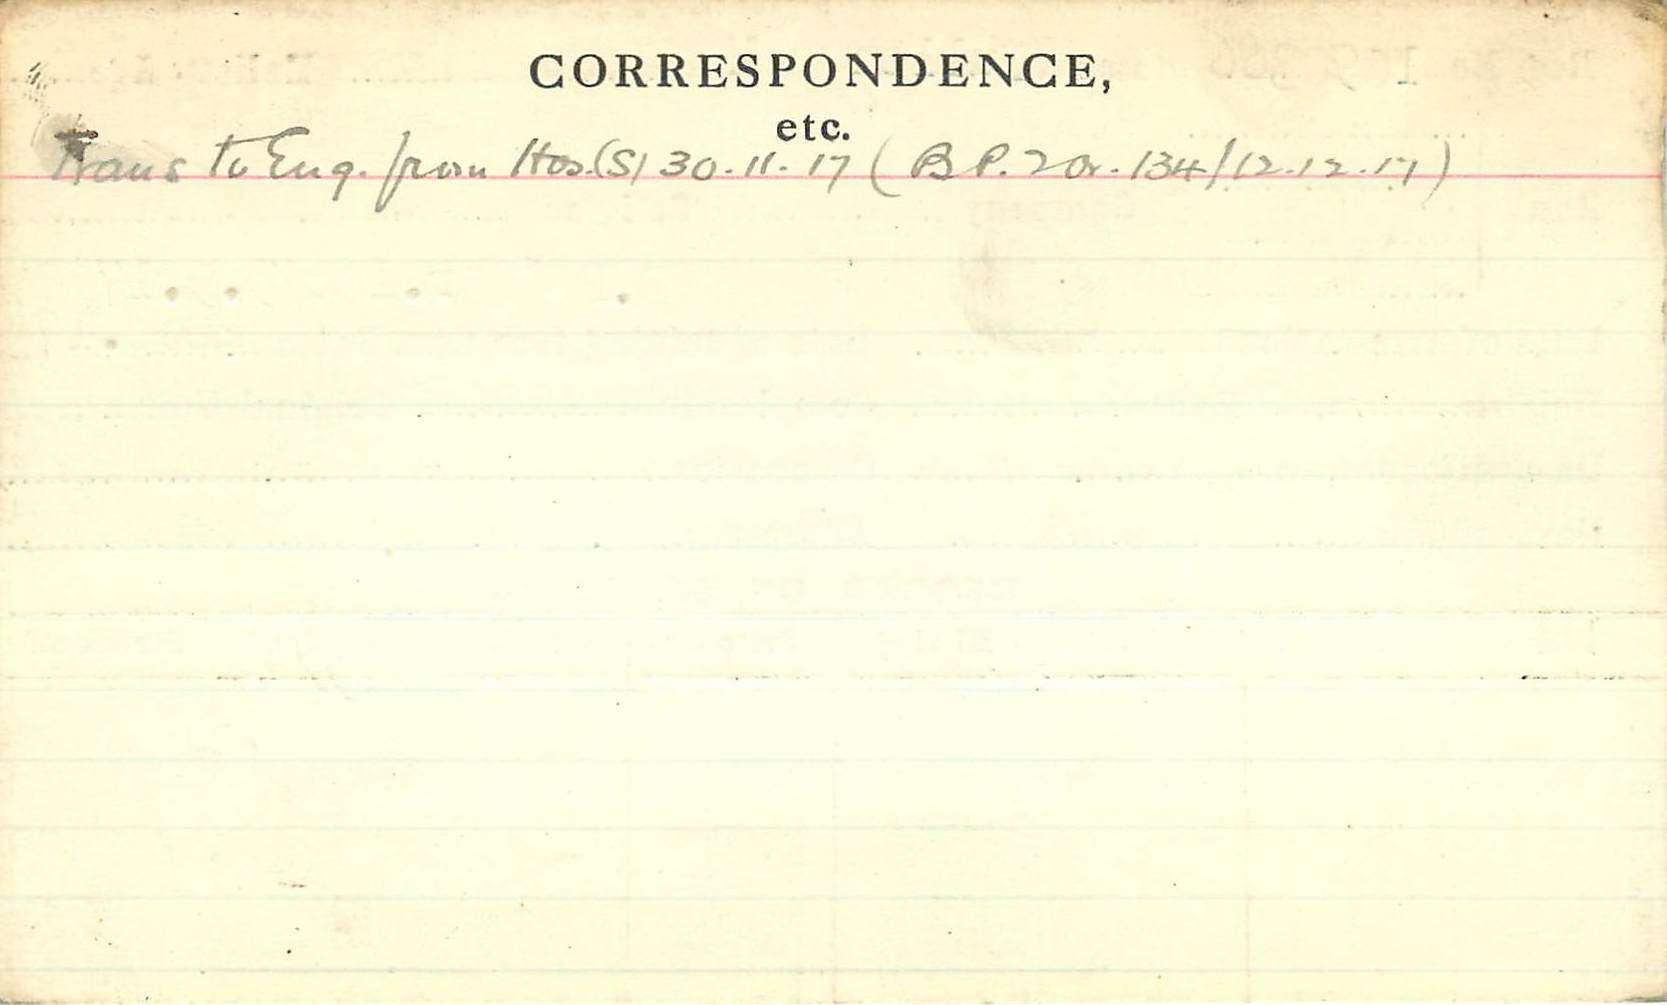 CORRESPONDENCE,
etc.
Trans to Eng. from Hos.(S) 30.11.17 (B P. 2 Or. 134/12.12.17)